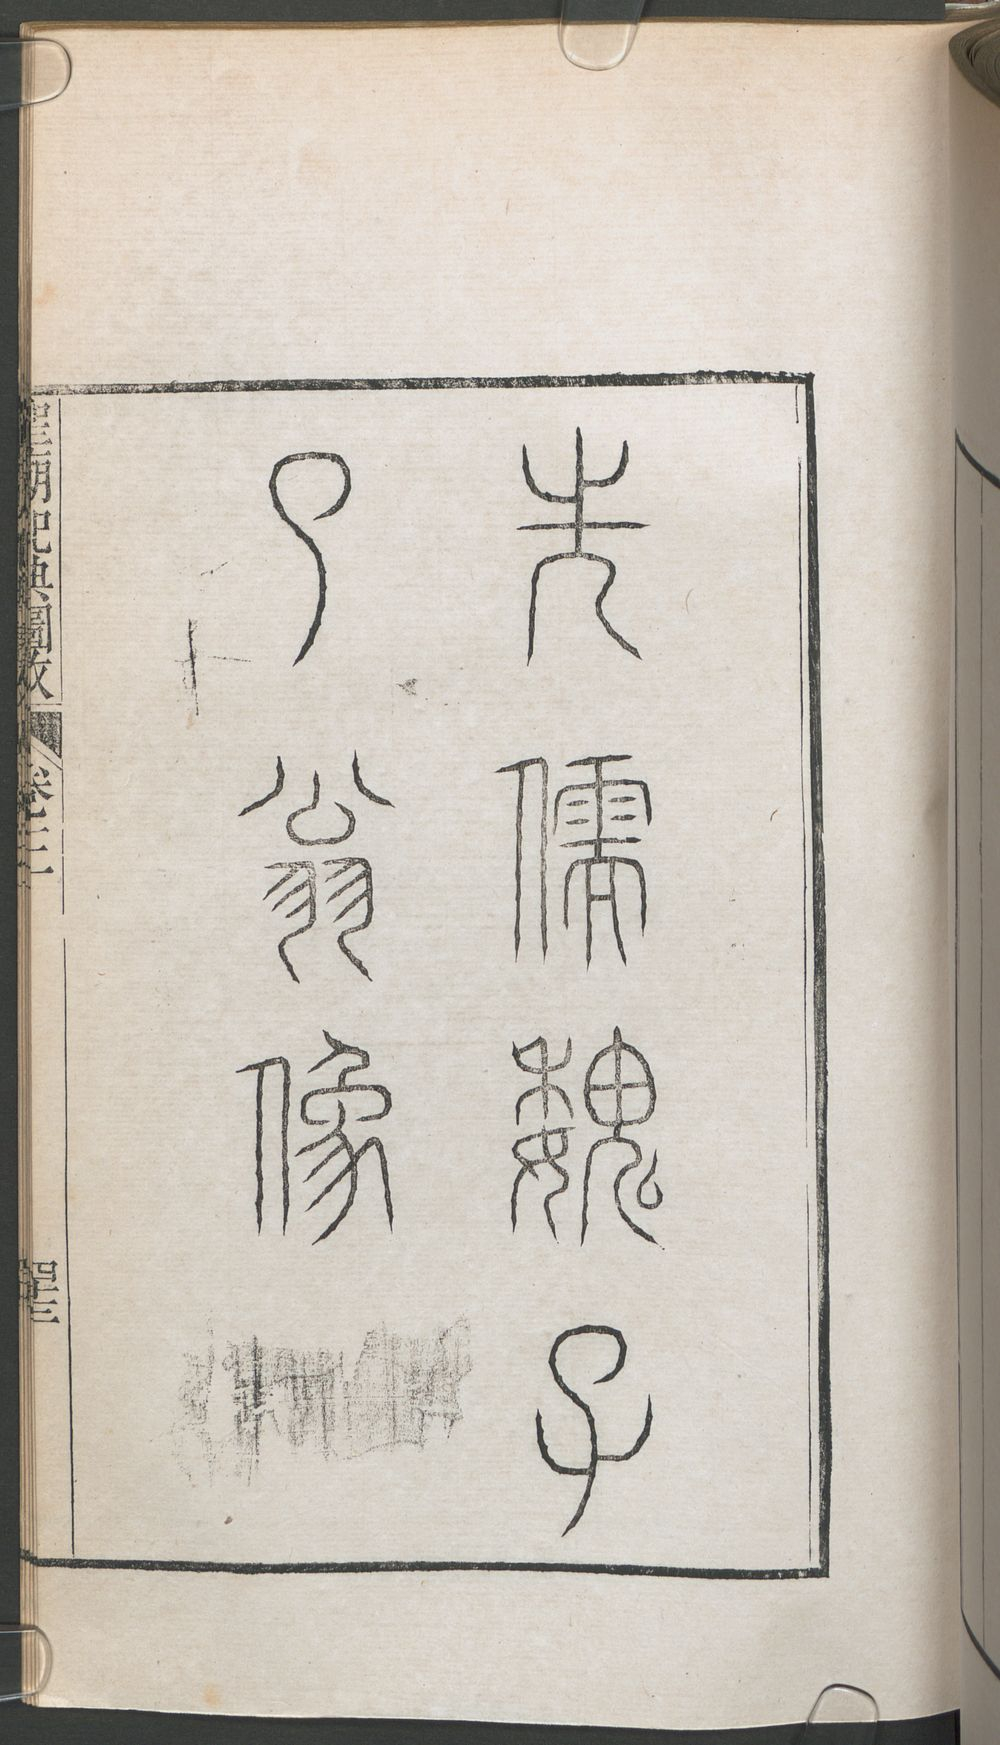 先儒魏子
了翁像
聖朝祀典圖攷
卷三